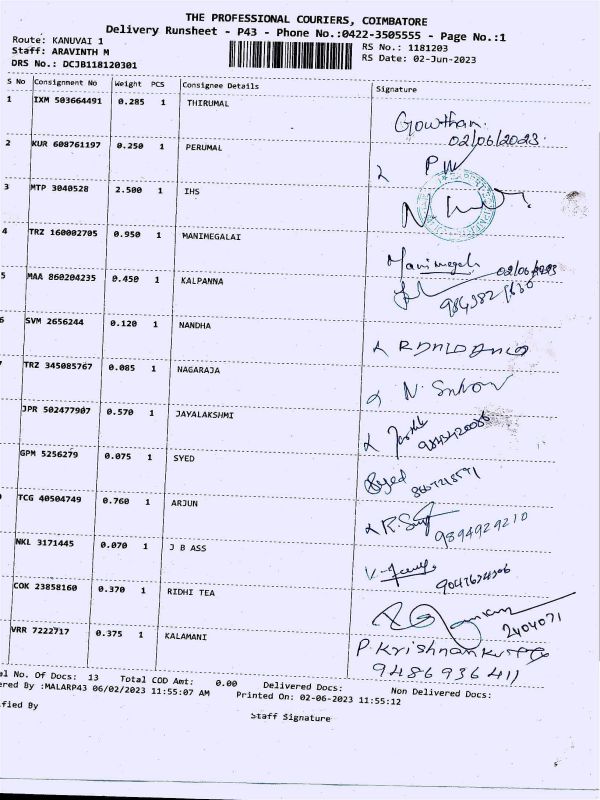 THE PROFESSIONAL COURIERS, COIMBATORE
Delivery Runsheet - P43 - Phone No.:0422-3505555 - Page No.:1
Route: KANUVAI 1 RS No.: 1181203
Staff: ARAVINTH M RS Date: 02-Jun-2023
DRS No.: DCJB118120301
S No Consignment No Weight PCS Consignee Details Signature
1 IXM 503664491 0.285 1 THIRUMAL
Gowthan.
02/06/2023
2 KUR 608761197 0.250 1 PERUMAL
3 MTP 3040528 2.500 1 IHS
4 TRZ 160002705 0.950 1 MANIMEGALAI
Manimegalai 02/06/2023
5 MAA 860204235 0.450 1 KALPANNA
6 SVM 2656244 0.120 1 NANDHA
TRZ 345085767 0.085 1 NAGARAJA
JPR 502477907 0.570 1 JAYALAKSHMI
GPM 5256279 0.075 1 SYED
Syed
TCG 40504749 0.760 1 ARJUN
9894929210
NKL 3171445 0.070 1 J B ASS
COK 23858160 0.370 1 RIDHI TEA
2404071
VRR 7222717 0.375 1 KALAMANI
9486936411
al No. Of Docs: 13 Total COD Amt: 0.00 Delivered Docs: Non Delivered Docs:
ered By :MALARP43 06/02/2023 11:55:07 AM Printed On: 02-06-2023 11:55:12
ified By
Staff Signature